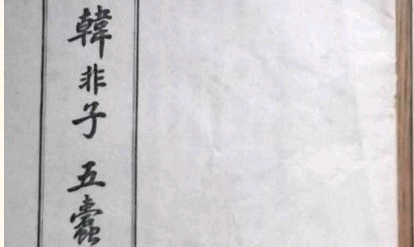 韓非子五蠹